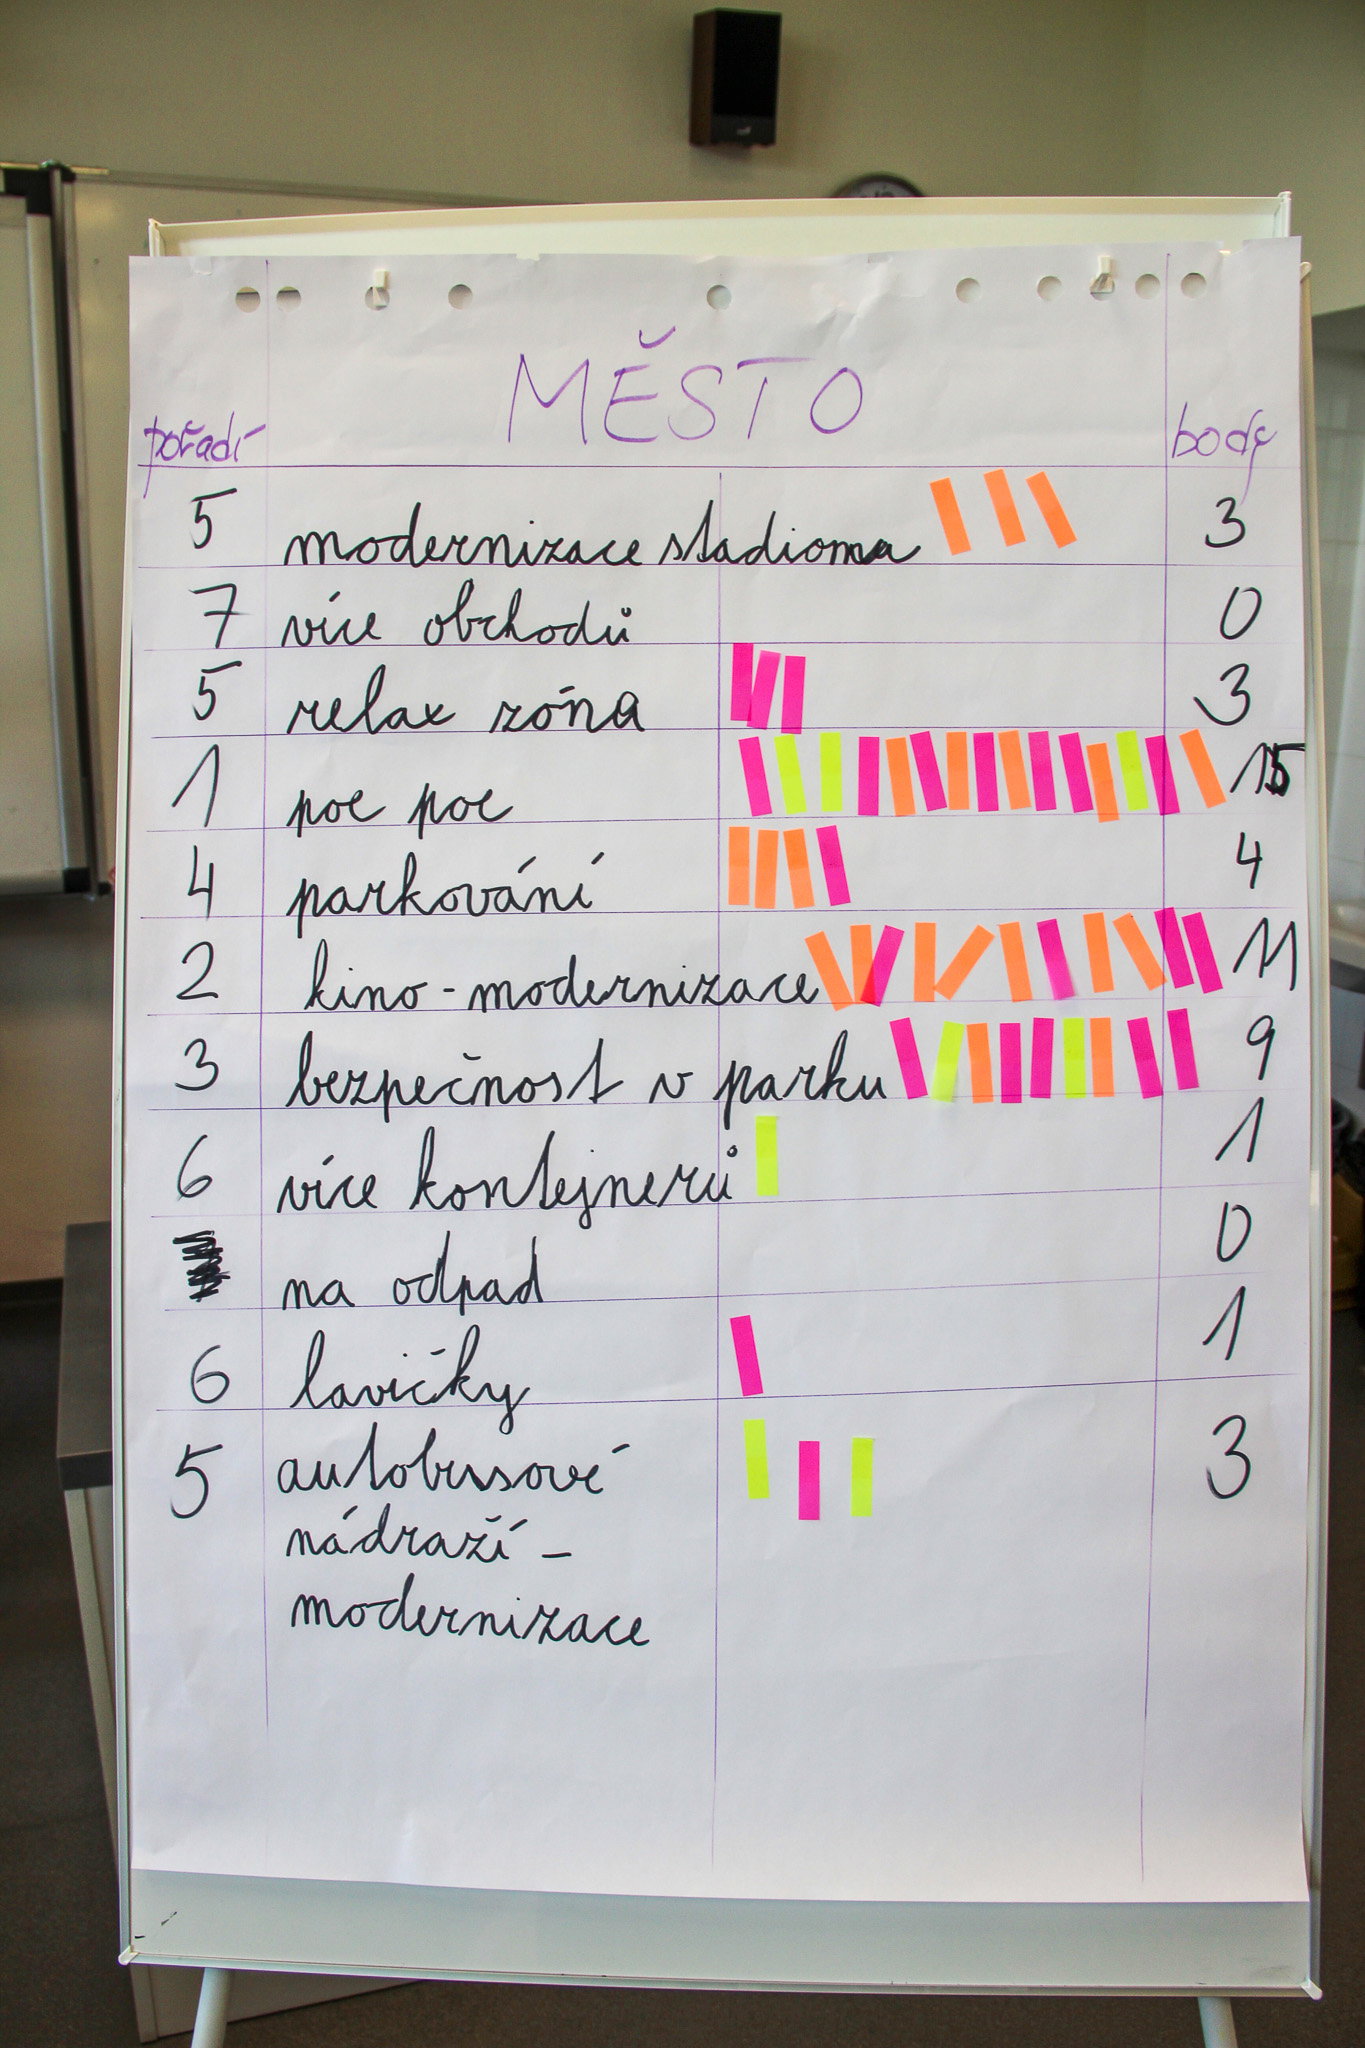 MĚSTO
pořadí body
5 modernizace stadionu 3
7 více obchodů 0
5 relax zóna 3
1 poc poc 15
4 parkování 4
2 kino - modernizace 11
3 bezpečnost v parku 9
6 více kontejnerů 1
na odpad 0
6 lavičky 1
5 autobusové 3
nádraží -
modernizace